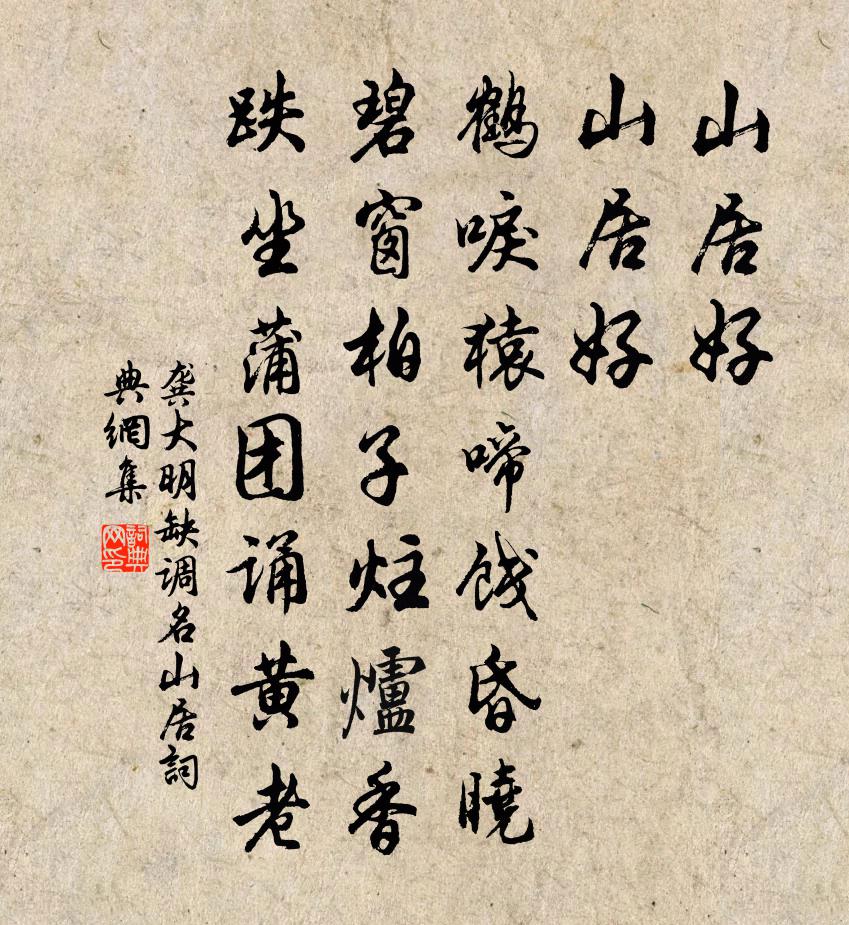 山居好
山居好
鶴唳猿啼餞昏曉
碧窗柏子炷爐香
趺坐蒲团诵黄老
龚大明缺调名山居詞
典網集
詞典网印